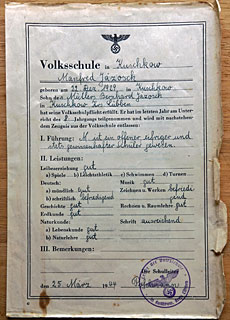 Volksschule in Kuschkow
Manfred Jazosch
geboren am 22. Dez. 1929, in Kuschkow
Sohn des Müllers Bernhard Jazosch
in Kuschkow Kr. Lübben
hat seine Volksschulpflicht erfüllt. Er hat im letzten Jahr am Unter-
richt des 8. Jahrgangs teilgenommen und wird mit nachstehen-
dem Zeugnis aus der Volksschule entlassen:
I. Führung: M. ist ein offener, eifriger und
stets gewissenhafter Schüler gewesen.
II. Leistungen:
Leibeserziehung gut
a) Spiele b) Leichtathletik c) Schwimmen d) Turnen
Deutsch: Musik gut
a) mündlich gut Zeichnen und Werken befriedi-
b) schriftlich befriedigend gend
Geschichte gut Rechnen u. Raumlehre gut
Erdkunde gut
Naturkunde Schrift ausreichend
a) Lebenskunde gut
b) Naturlehre gut
III. Bemerkungen:
Der Schulleiter
den 25. März 1944